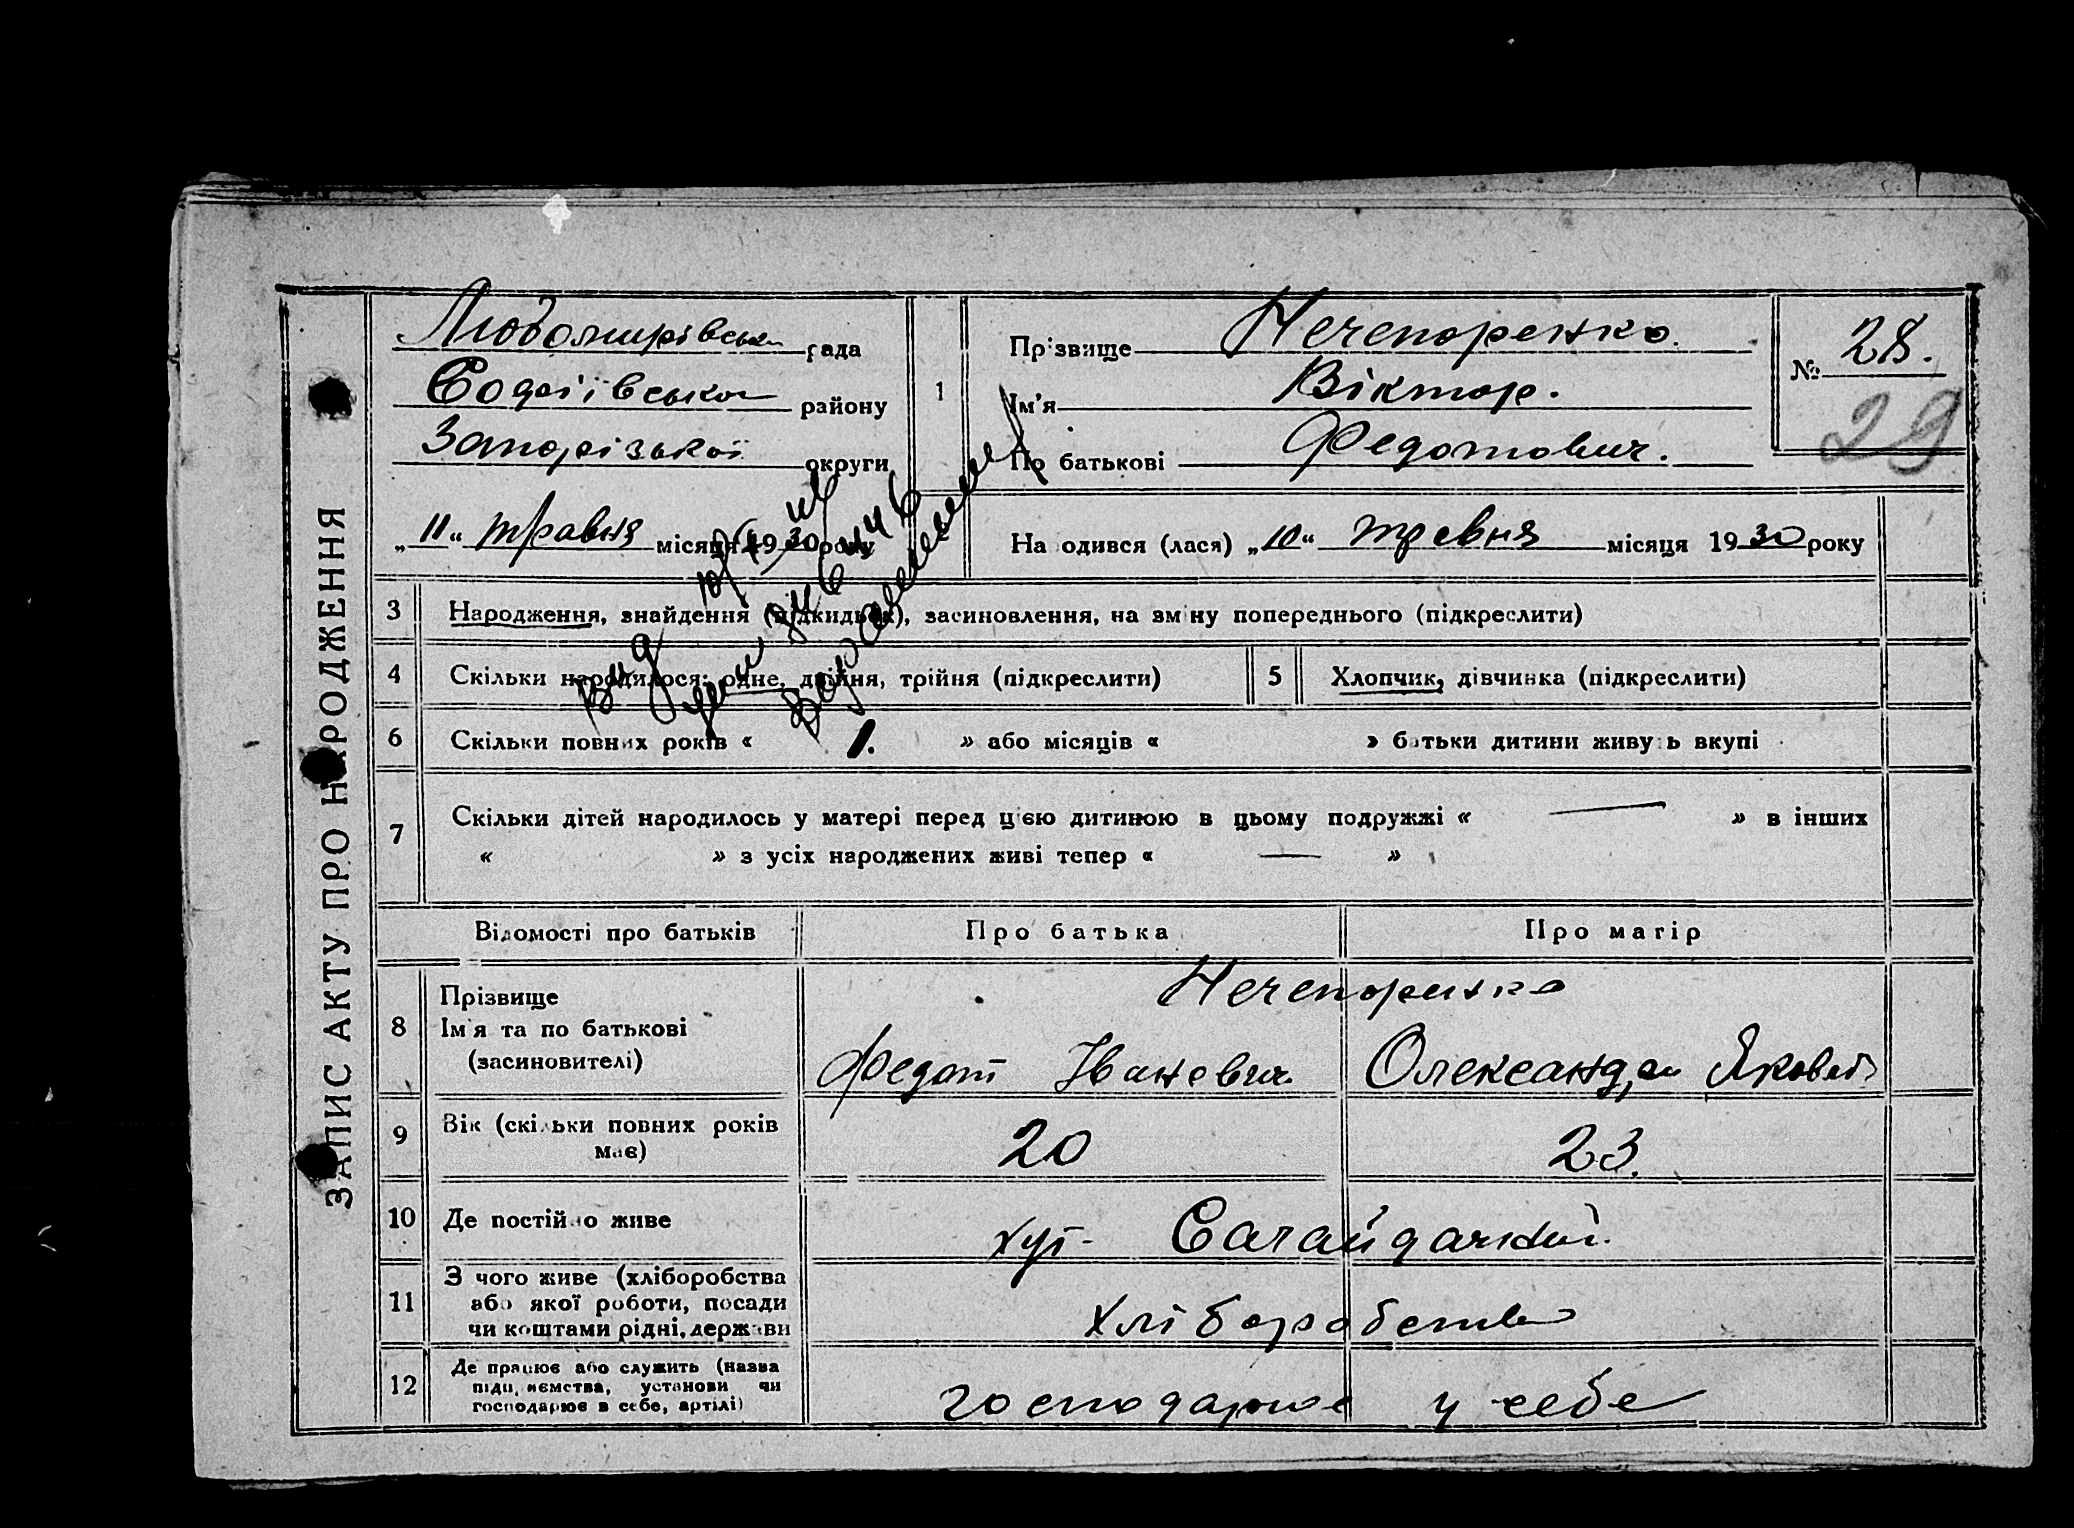 ЗАПИС АКТУ ПРО НАРОДЖЕННЯ
Любомирівська рада
Софіївського району
Запорізької округи
„11“ травня місяця 1930 року
1
Прізвище Нечепоренко.
Ім'я Віктор.
По батькові Федотович.
№ 28.
29
Народився (лася) „10“ травня місяця 1930 року
3 Народження, знайдення (підкидька), засиновлення, на зміну попереднього (підкреслити)
4 Скільки народилося: одне, двійня, трійня (підкреслити)
5 Хлопчик, дівчинка (підкреслити)
6 Скільки повних років « 1. » або місяців « » батьки дитини живуть вкупі
7 Скільки дітей народилось у матері перед цією дитиною в цьому подружжі « — » в інших
« » з усіх народжених живі тепер « — »
Відомості про батьків
Про батька
Про матір
8 Прізвище
Ім'я та по батькові
(засиновителі)
Нечепоренко
Федот Іванович
Олександра Яковл
9 Вік (скільки повних років
має)
20
23.
10 Де постійно живе
хут. Сагайдачний.
11 З чого живе (хліборобства
або якої роботи, посади
чи коштами рідні, держави
хліборобства
12 Де працює або служить (назва
підприємства, установи чи
господарює в себе, артілі)
господарює у себе